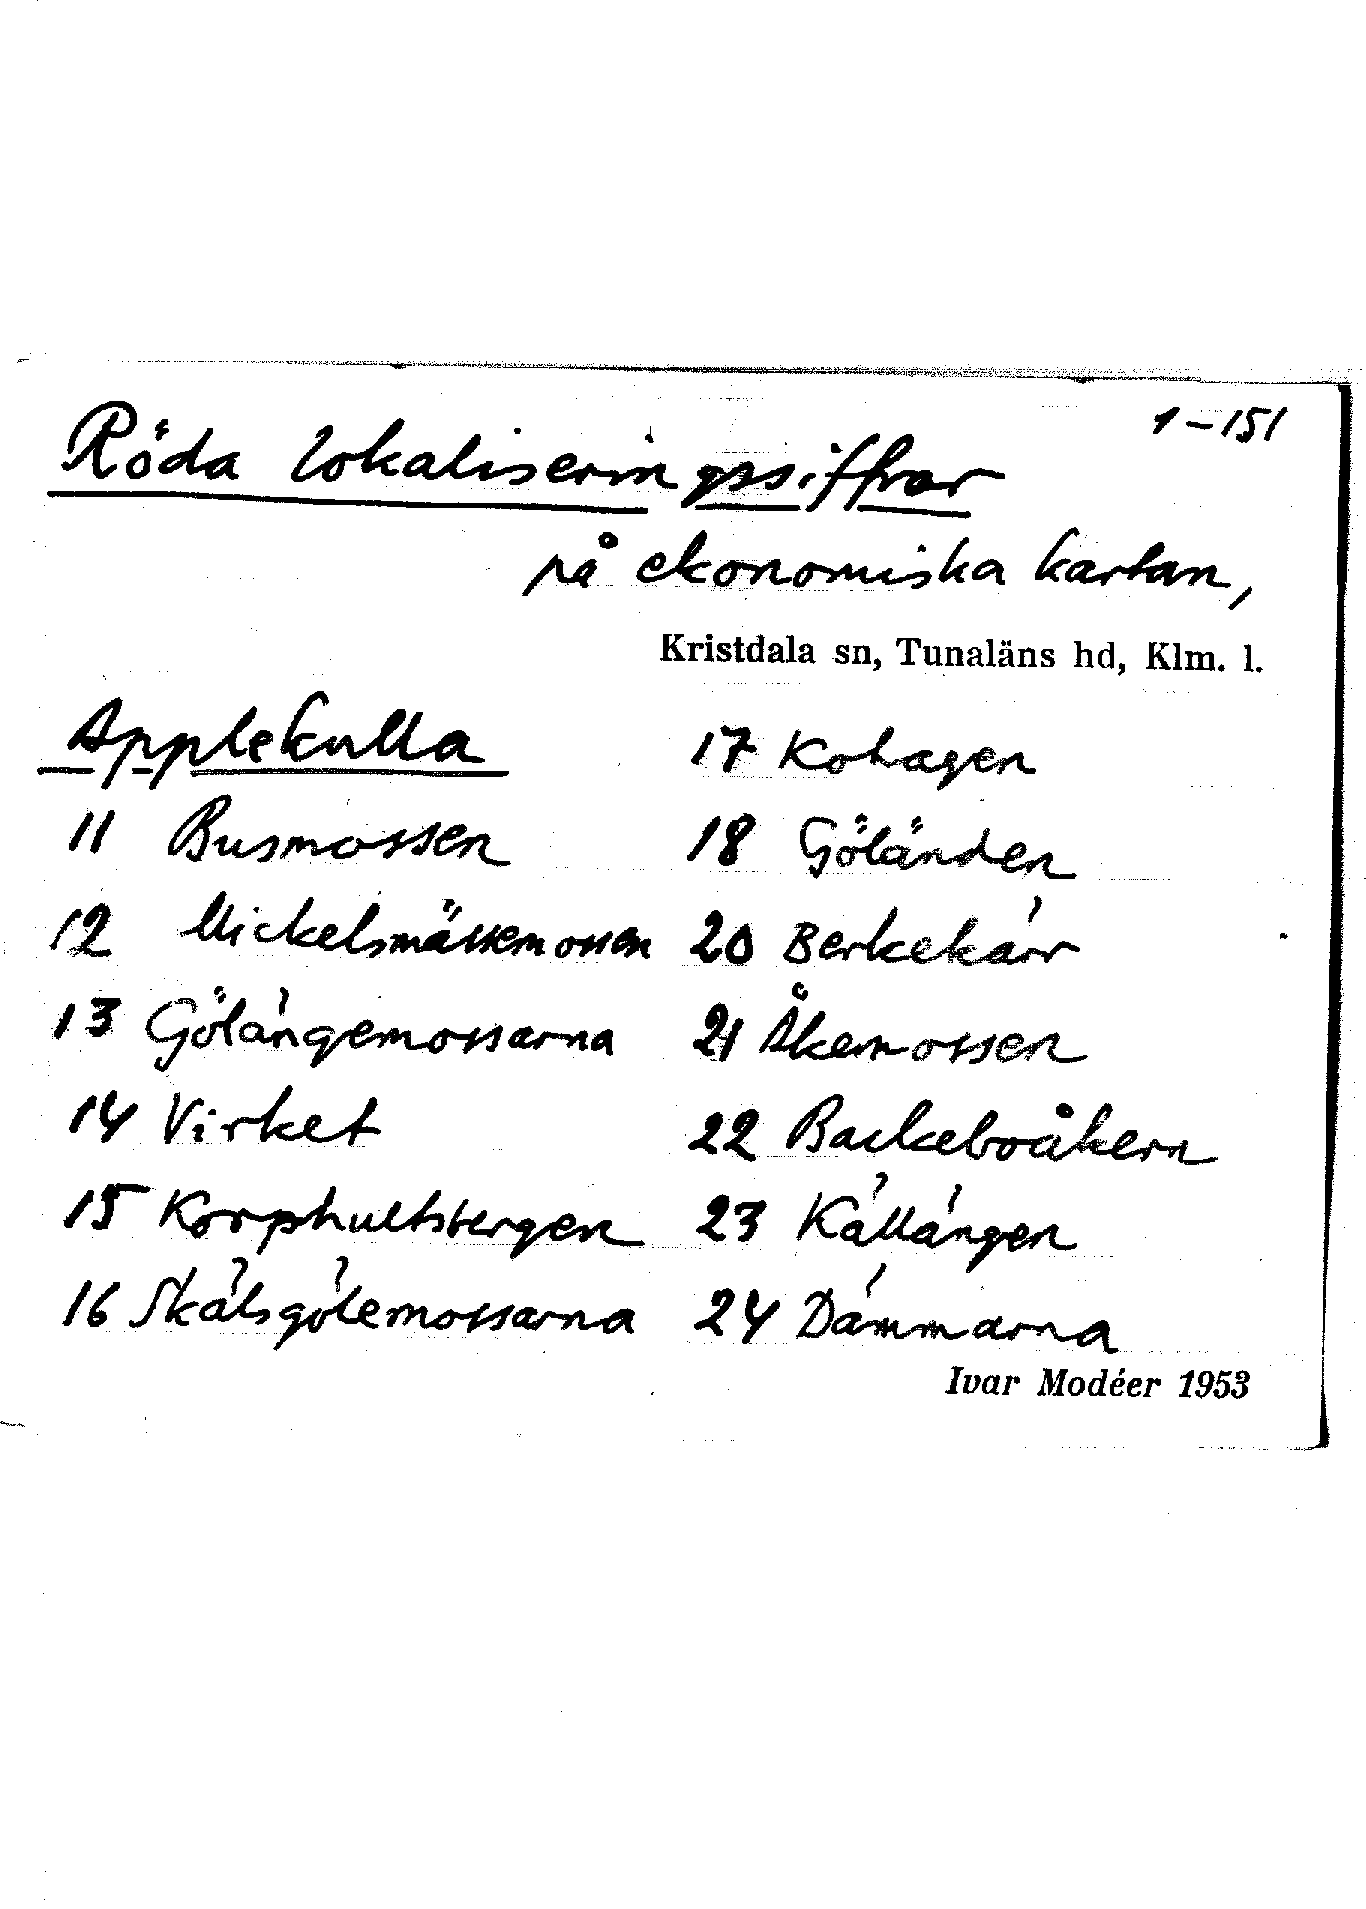 1-151
Röda lokaliseringssiffror
på ekonomiska kartan,
Kristdala sn, Tunaläns hd, Klm. l.
Applekulla
11 Busmossen
12 Mickelsmässemossen
13 Gölängemossarna
14 Virket
15 Korphultsbergen
16 Skälsgölemossarna
17 Kohagen
18 Göländen
20 Berkekärr
21 Åkemossen
22 Backeboåkern
23 Källängen
24 Dämmarna
Ivar Modéer 1953